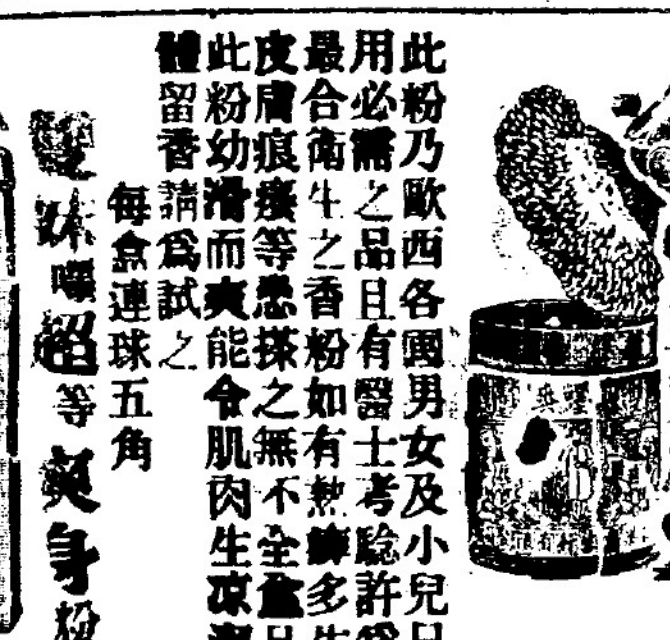 此粉乃歐西各國男女及小兒日
用必需之品且有醫士考驗許為
最合衛生之香粉如有熱癬多生
皮膚痕癢等患搽之無不全愈且
此粉幼滑而爽能令肌肉生凉
體留香請為試之
每盒連球五角
等爽身粉